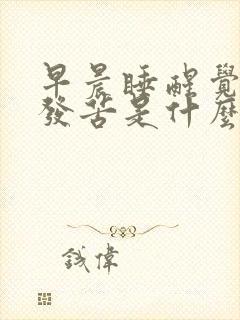 早晨睡醒覺
發苦是什麼
錢偉